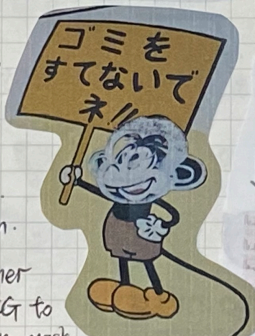 ゴミを
すてないで
ネ!!
n.
her
G to